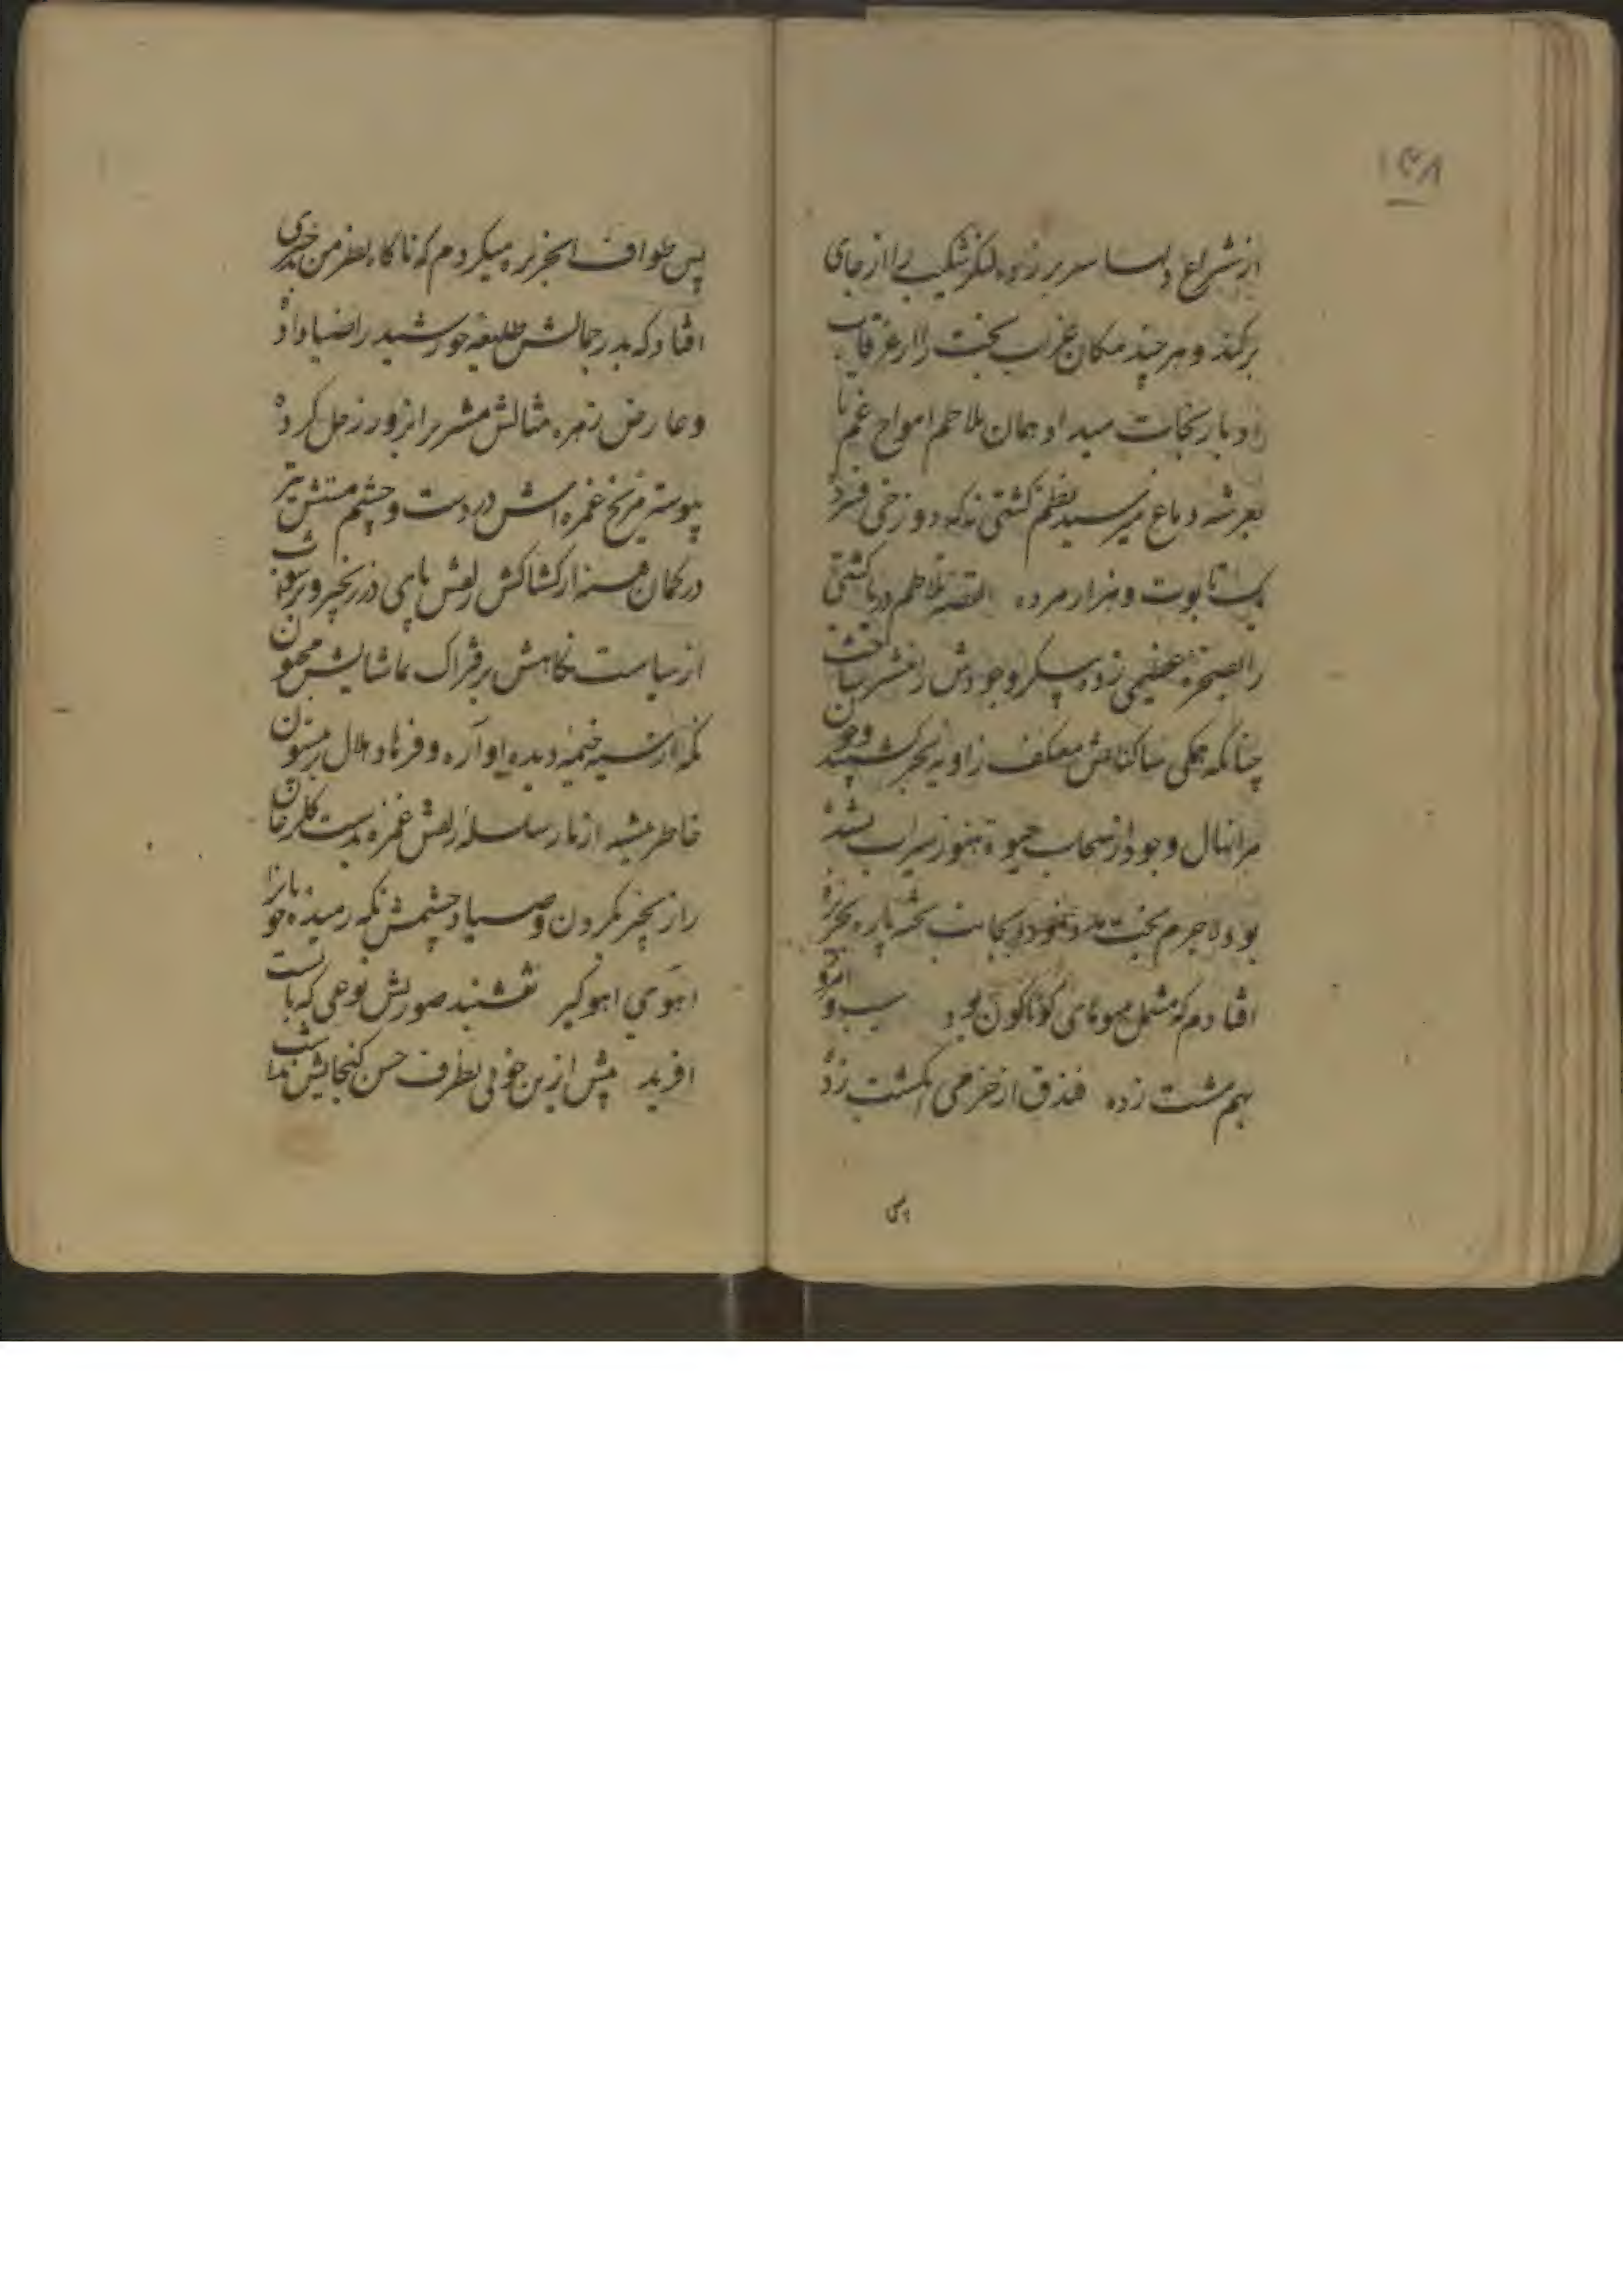 ۱۴۸
از شراع دلها سر بر زده لنگر شکیب را از جای
برکند و هر چند مکان غراب بخت را از غرقاب
ادبار نجات میداد همان تلاطم امواج غم با
بعرشه دماغ میرسید نظم کشتی نه که دوزخی فسرده
یک تابوت و هزار مرده القصه تلاطم دریا کشتی
را بصخره عظیمی زده پیکر وجودش را منتشر ساخت
چنانکه همکی ساکنانش معتکف زاویه بحر کشتند و چون
مرا نهال وجود از سحاب حیوة هنوز سیراب نشده
بود لاجرم بخت مدد نمود و بجانب تخته پاره بجزیره
افتادم که مشتمل میوهای کوناکون بود سیب و امرود
بهم مشت زده فندق از خرمی انکشت زده
پس
پس طواف انجزیره میکردم که ناکاه نظر من بدختری
افتاد که بدر جمالش طلیعه خورشید را ضیا داده
و عارض زهره مثالش مشتریرا نزور زحل کرده
پیوسته مریخ غمزه اش در دست و چشم مستش تیر
در کمان هزار کشاکش زلفش پای در زنجیر و
از سیاست نکاهش بر فتراک تماشایش مجنون
نکه از سیه خیمه دیده او آواره و فرهاد هلال بیستون
خاطر شیشه از مار سلسله زلفش غمزه بدست کلرخان
را زنجیر کردن و صیاد چشمش نکه رمیده خوبانرا
اهوی اهوکیر نقشبند صورتش نوعی که بایست
افرید پیش ازین خوبی بظرف حسن کنجایش نداشت